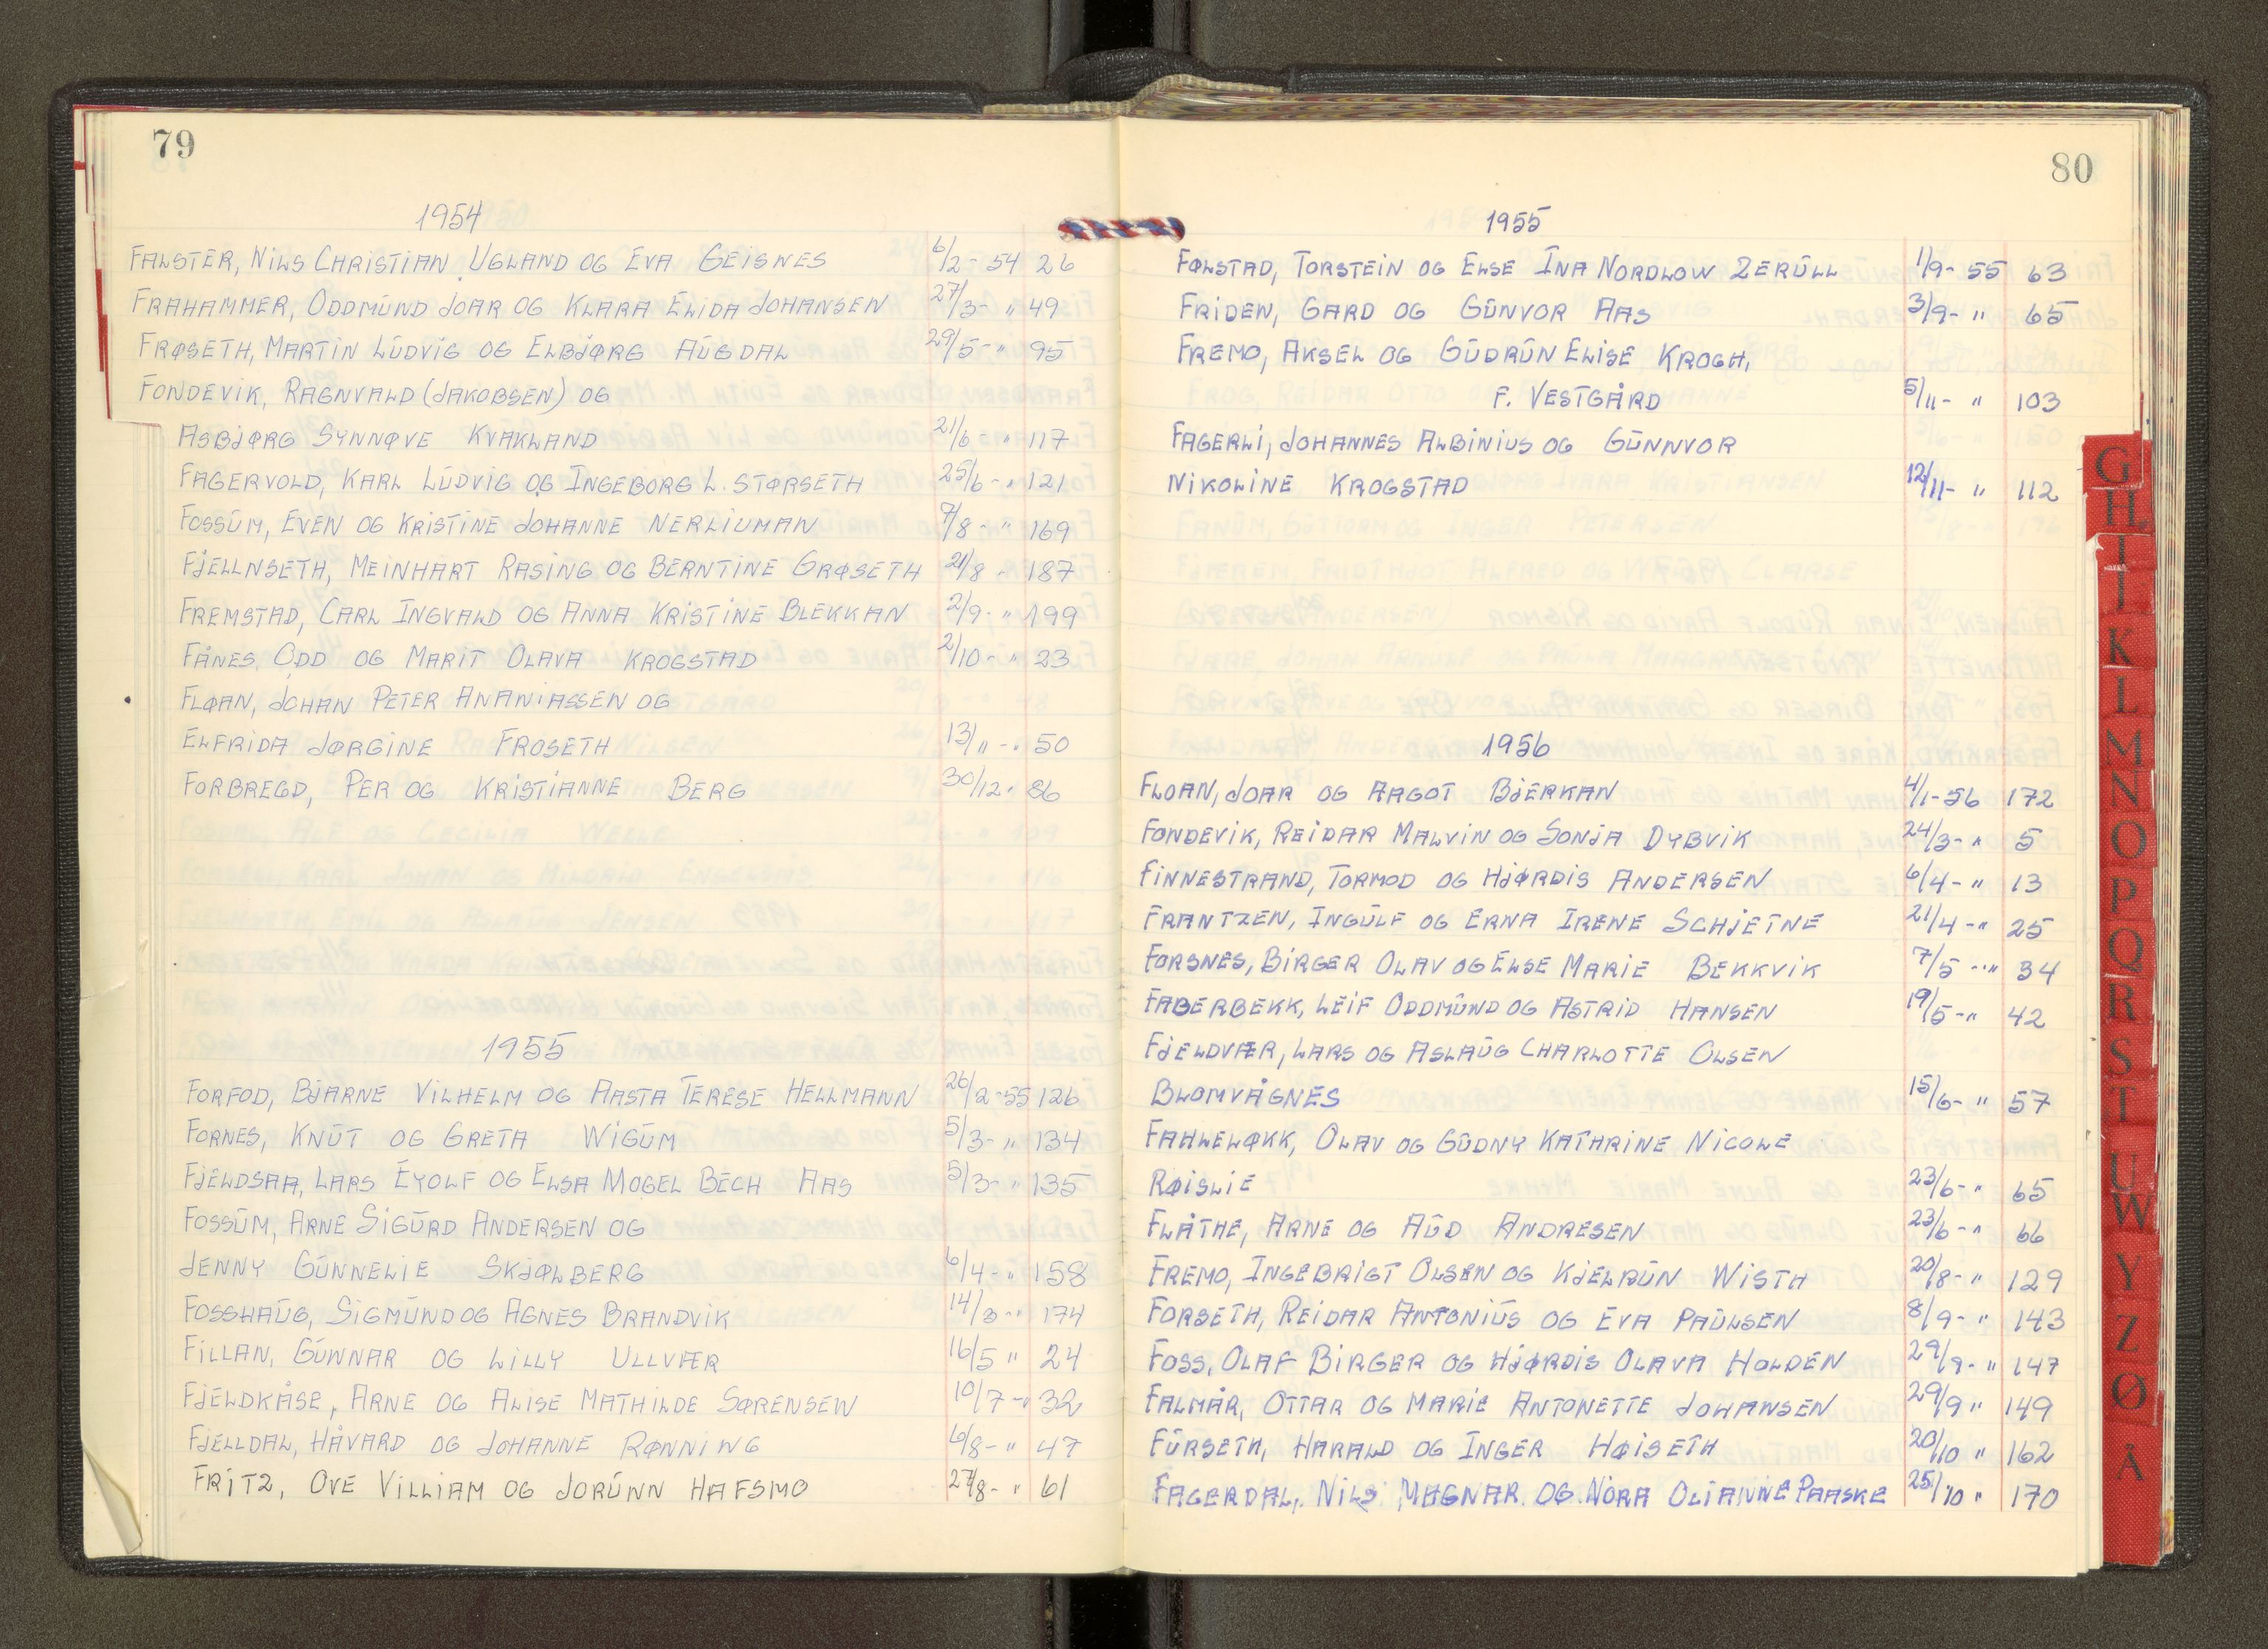 79
1954
FALSTER, NILS CHRISTIAN UGLAND OG EVA GEISNES 6/2-54 26
FRAHAMMER, ODDMUND JOAR OG KLARA ELIDA JOHANSEN 27/3- " 49
FRØSETH, MARTIN LUDVIG OG ELBJØRG AUGDAL 29/5- " 95
FONDEVIK, RAGNVALD (JAKOBSEN) OG
ASBJØRG SYNNØVE KVAKLAND 21/6- " 117
FAGERVOLD, KARL LUDVIG OG INGEBORG L. STØRSETH 25/6- " 121
FOSSUM, EVEN OG KRISTINE JOHANNE NERLIUMAN 7/8- " 169
FJELLNSETH, MEINHART RASING OG BERNTINE GRØSETH 21/8- " 187
FREMSTAD, CARL INGVALD OG ANNA KRISTINE BLEKKAN 2/9- " 199
FÅNES, ODD OG MARIT OLAVA KROGSTAD 2/10- " 23
FLØAN, JOHAN PETER ANANIASSEN OG
ELFRIDA JØRGINE FROSETH 13/11- " 50
FORBREGD, PER OG KRISTIANNE BERG 30/12- 86
1955
FORFOD, BJARNE VILHELM OG AASTA TERESE HELLMANN 26/2-55 126
FORNES, KNUT OG GRETA WIGUM 5/3- " 134
FJELDSAA, LARS EYOLF OG ELSA MOGEL BECH AAS 5/3- " 135
FOSSUM, ARNE SIGURD ANDERSEN OG
JENNY GUNNELIE SKJØLBERG 6/4- " 158
FOSSHAUG, SIGMUND OG AGNES BRANDVIK 14/3- " 174
FILLAN, GUNNAR OG LILLY ULLVÆR 16/5 " 24
FJELDKÅSE, ARNE OG ALISE MATHILDE SØRENSEN 10/7- " 32
FJELLDAL, HÅVARD OG JOHANNE RØNNING 6/8- " 47
FRITZ, OVE VILLIAM OG JORUNN HAFSMO 27/8- " 61
80
1955
FØLSTAD, TORSTEIN OG ELSE INA NORDLOW ZERULL 1/9-55 63
FRIDEN, GARD OG GUNVOR AAS 3/9- " 65
FREMO, AKSEL OG GUDRUN ELISE KROGH,
F. VESTGÅRD 5/11- " 103
FAGERLI, JOHANNES ALBINIUS OG GUNNVOR
NIKOLINE KROGSTAD 12/11- " 112
1956
FLOAN, JOAR OG AAGOT BJERKAN 4/1-56 172
FONDEVIK, REIDAR MALVIN OG SONJA DYBVIK 24/3- " 5
FINNESTRAND, TORMOD OG HJØRDIS ANDERSEN 6/4- " 13
FRANTZEN, INGULF OG ERNA IRENE SCHJETNE 21/4- " 25
FORSNES, BIRGER OLAV OG ELSE MARIE BEKKVIK 7/5- " 34
FABERBEKK, LEIF ODDMUND OG ASTRID HANSEN 19/5- " 42
FJELDVÆR, LARS OG ASLAUG CHARLOTTE OLSEN
BLOMVÅGNES 15/6- " 57
FAHLELØKK, OLAV OG GUDNY KATHRINE NICOLE
RØISLIE 23/6- " 65
FLÅTHE, ARNE OG AUD ANDRESEN 23/6- " 66
FREMO, INGEBRIGT OLSEN OG KJELRUN WISTH 20/8- " 129
FORSETH, REIDAR ANTONIUS OG EVA PAULSEN 8/9- " 143
FOSS, OLAF BIRGER OG HJØRDIS OLAVA HOLDEN 29/9- " 147
FALMÅR, OTTAR OG MARIE ANTONETTE JOHANSEN 29/9 " 149
FURSETH, HARALD OG INGER HØISETH 20/10 " 162
FAGERDAL, NILS MAGNAR OG NORA OLIANNE PAASKE 25/10 " 170
G
H
I
J
K
L
M
N
O
P
Q
R
S
T
U
W
Y
Z
Ø
Å